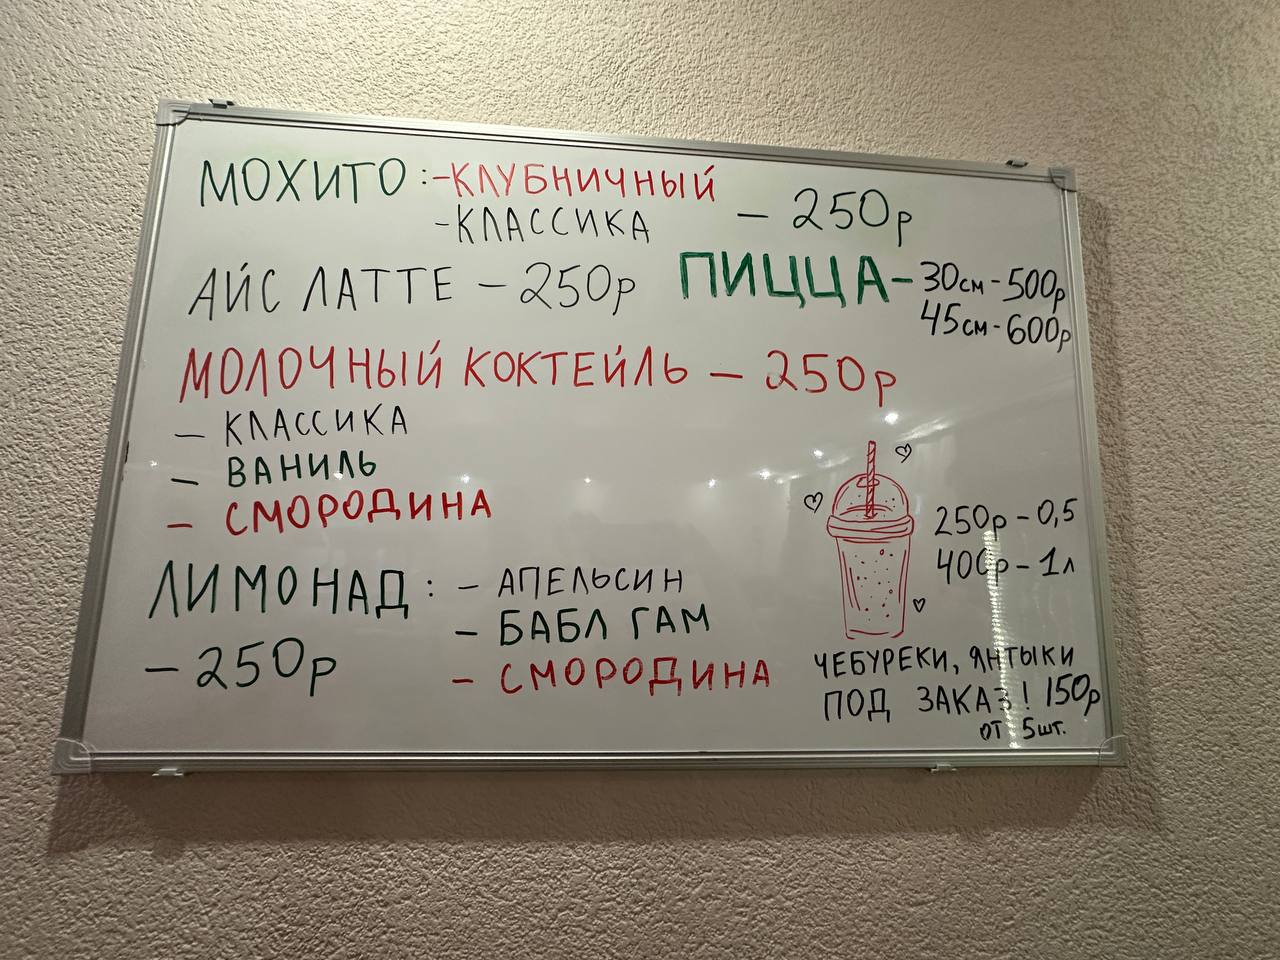 МОХИТО :-КЛУБНИЧНЫЙ
-КЛАССИКА
- 250р
АЙС ЛАТТЕ - 250р
ПИЦЦА- 30см - 500р
45см - 600р
МОЛОЧНЫЙ КОКТЕЙЛЬ - 250р
- КЛАССИКА
- ВАНИЛЬ
- СМОРОДИНА
250р - 0,5
400р - 1л
ЛИМОНАД : - АПЕЛЬСИН
- БАБЛ ГАМ
- 250р
- СМОРОДИНА
ЧЕБУРЕКИ, ЯНТЫКИ
ПОД ЗАКАЗ! 150р
ОТ 5шт.